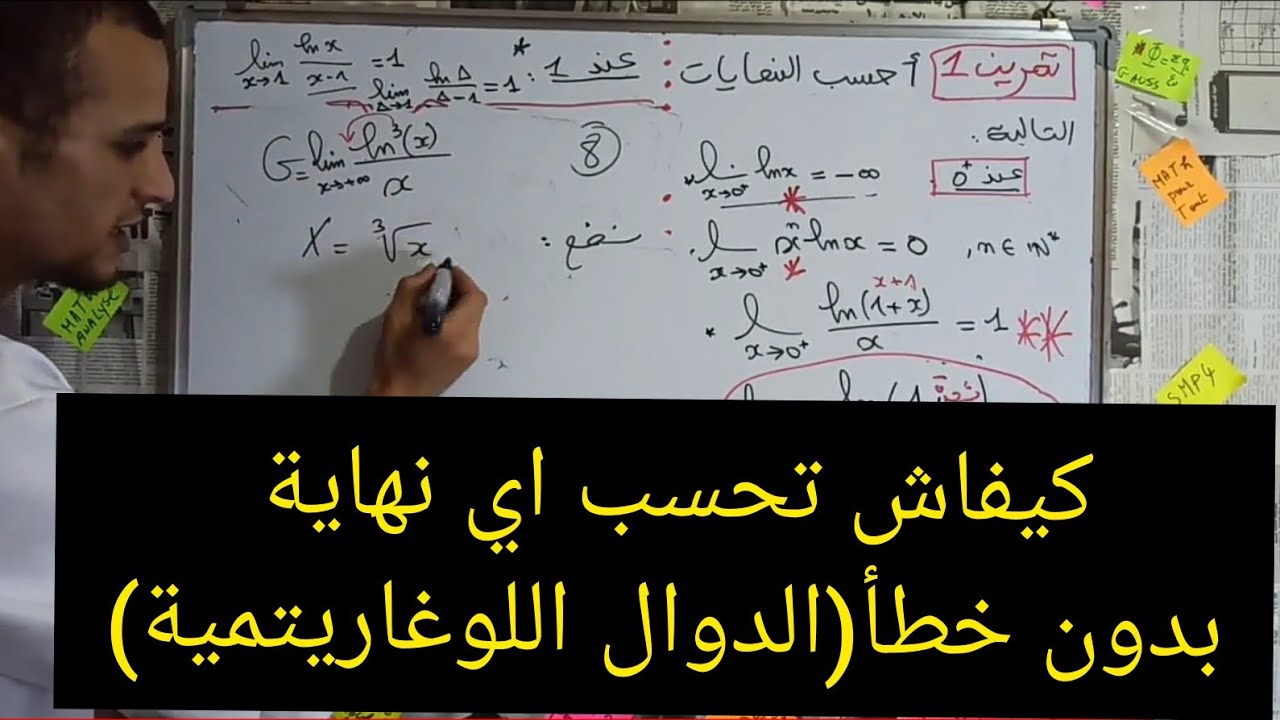 تمرين 1 أحسب النهايات
التالية:
عند 0⁺
lim x→0⁺ ln x = -∞
lim x→0⁺ xⁿ ln x = 0 , n ∈ ℕ*
x+1
lim x→0⁺ ln(1+x)/x = 1
عند 1 :
lim x→1 ln x/(x-1) = 1
lim Δ→1 ln Δ/(Δ-1) = 1
⑧
G = lim x→+∞ ln³(x)/x
نضع :
X = ³√x
GAUSS
MATH
MATH
ANALYSE
SMP4
كيفاش تحسب اي نهاية
بدون خطأ(الدوال اللوغاريتمية)